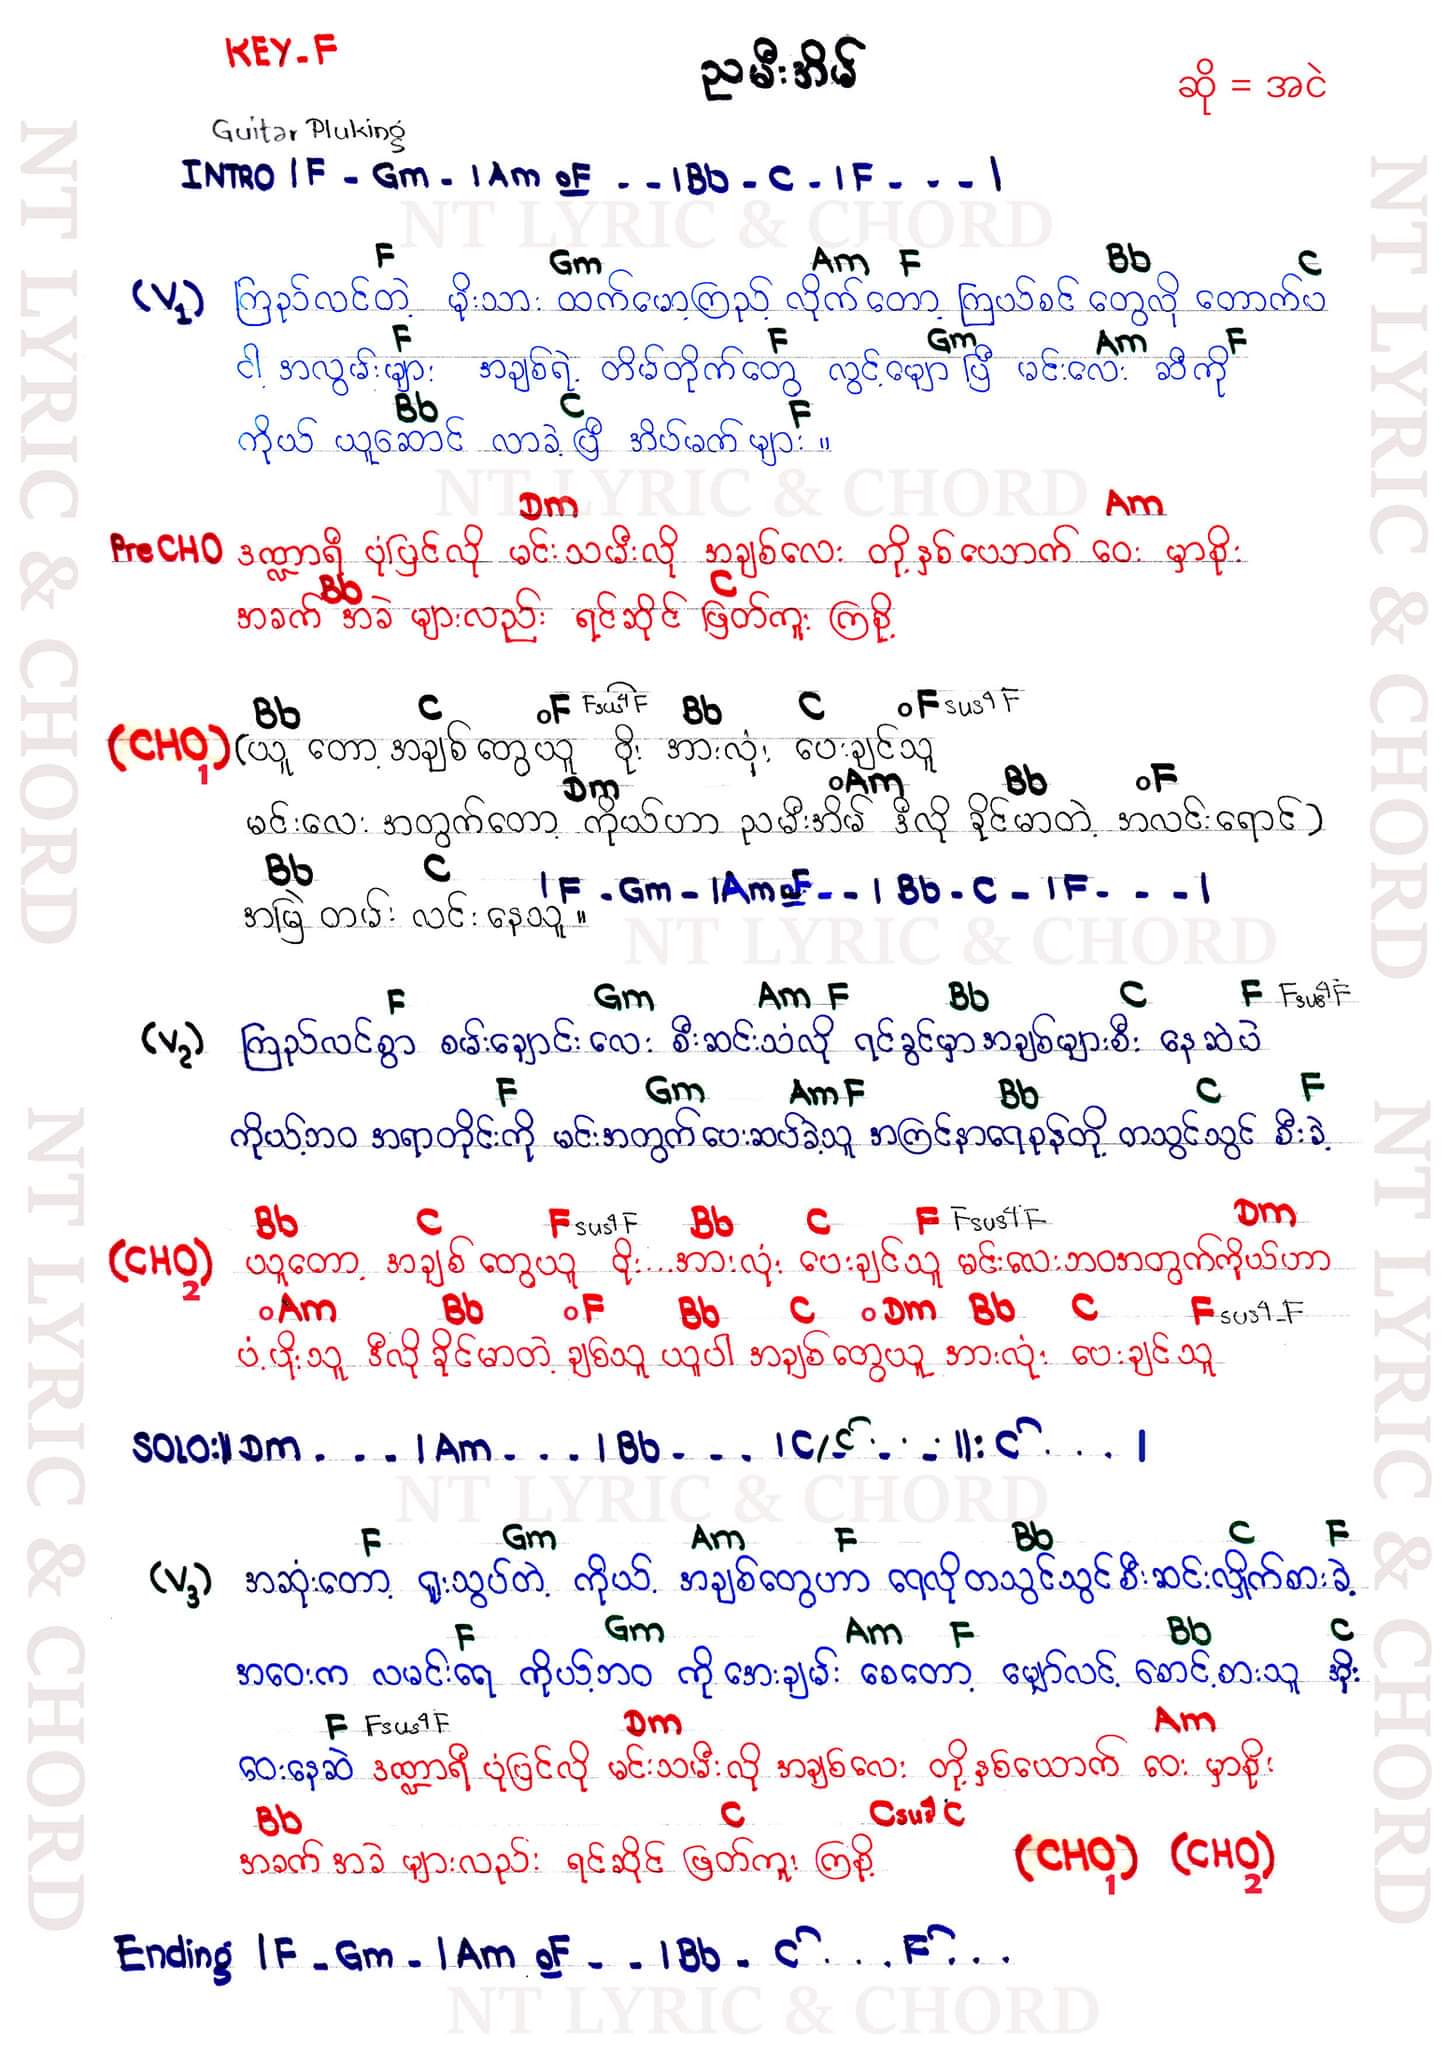 KEY-F
ညမီးအိမ်
ဆို = အငဲ
Guitar Pluking
INTRO | F - Gm - | Am oF - - | Bb - C - | F - - - |
F Gm Am F Bb C
(V1) ကြည်လင်တဲ့ မိုးသား ထက်မော့ကြည့် လိုက်တော့ ကြယ်စင် တွေလို တောက်ပ
F F Gm Am F
ငါ့ အလွမ်းများ အချစ်ရဲ့ တိမ်တိုက်တွေ လွင့်မျော ပြီ မင်းလေး ဆီကို
Bb C F
ကိုယ် ယူဆောင် လာခဲ့ ပြီ အိပ်မက် များ ။
Dm Am
Pre CHO ဒဏ္ဍာရီ ပုံပြင်လို မင်းသမီးလို အချစ်လေး တို့နှစ်ယောက် ဝေး မှာစိုး
Bb C
အခက် အခဲ များလည်း ရင်ဆိုင် ဖြတ်ကူး ကြစို့
Bb C oF Fsus4 F Bb C oF sus4 F
(CHO1) (ယူ တော့ အချစ် တွေယူ ဖိုး အားလုံး ပေးချင်သူ
Dm oAm Bb oF
မင်းလေး အတွက်တော့ ကိုယ်ဟာ ညမီးအိမ် ဒီလို ခိုင်မာတဲ့ အလင်းရောင် )
Bb C | F - Gm - | Am oF - - | Bb - C - | F - - - |
အမြဲ တမ်း လင်းနေသူ ။
F Gm Am F Bb C F Fsus4 F
(V2) ကြည်လင်စွာ စမ်းချောင်းလေး စီးဆင်းသံလို ရင်ခွင်မှာအချစ်များစီး နေဆဲပဲ
F Gm Am F Bb C F
ကိုယ့်ဘဝ အရာတိုင်းကို မင်းအတွက်ပေးဆပ်ခဲ့သူ အကြင်နာရေစုန်တို့ တသွင်သွင် စီးခဲ့
Bb C F sus4 F Bb C F Fsus4 F Dm
(CHO2) ယူတော့ အချစ် တွေယူ ဖိုး...အားလုံး ပေးချင်သူ မင်းလေးဘဝအတွက်ကိုယ်ဟာ
oAm Bb oF Bb C oDm Bb C F sus4 F
ပံ့ပိုးသူ ဒီလို ခိုင်မာတဲ့ ချစ်သူ ယူပါ အချစ်တွေယူ အားလုံး ပေးချင်သူ
SOLO:|| Dm . . . | Am - - - | Bb - - . | C/C . . . ||: C . . . |
F Gm Am F Bb C F
(V3) အဆုံးတော့ ရူးသွပ်တဲ့ ကိုယ့် အချစ်တွေဟာ ရေလိုတသွင်သွင်စီးဆင်းလှိုက်စားခဲ့
F Gm Am F Bb C
အဝေးက လမင်းရေ ကိုယ့်ဘဝ ကိုအေးချမ်း စေတော့ မျှော်လင့် စောင့်စားသူ အိုး
F Fsus4 F Dm Am
ဝေးနေဆဲ ဒဏ္ဍာရီ ပုံပြင်လို မင်းသမီးလို အချစ်လေး တို့နှစ်ယောက် ဝေး မှာစိုး
Bb C Csus4 C
အခက် အခဲ များလည်း ရင်ဆိုင် ဖြတ်ကူး ကြစို့ (CHO1) (CHO2)
Ending | F - Gm - | Am oF - - | Bb - C . . . F . . .
NT LYRIC & CHORD
NT LYRIC & CHORD
NT LYRIC & CHORD
NT LYRIC & CHORD
NT LYRIC & CHORD
NT LYRIC & CHORD
NT LYRIC & CHORD
NT LYRIC & CHORD
NT LYRIC & CHORD